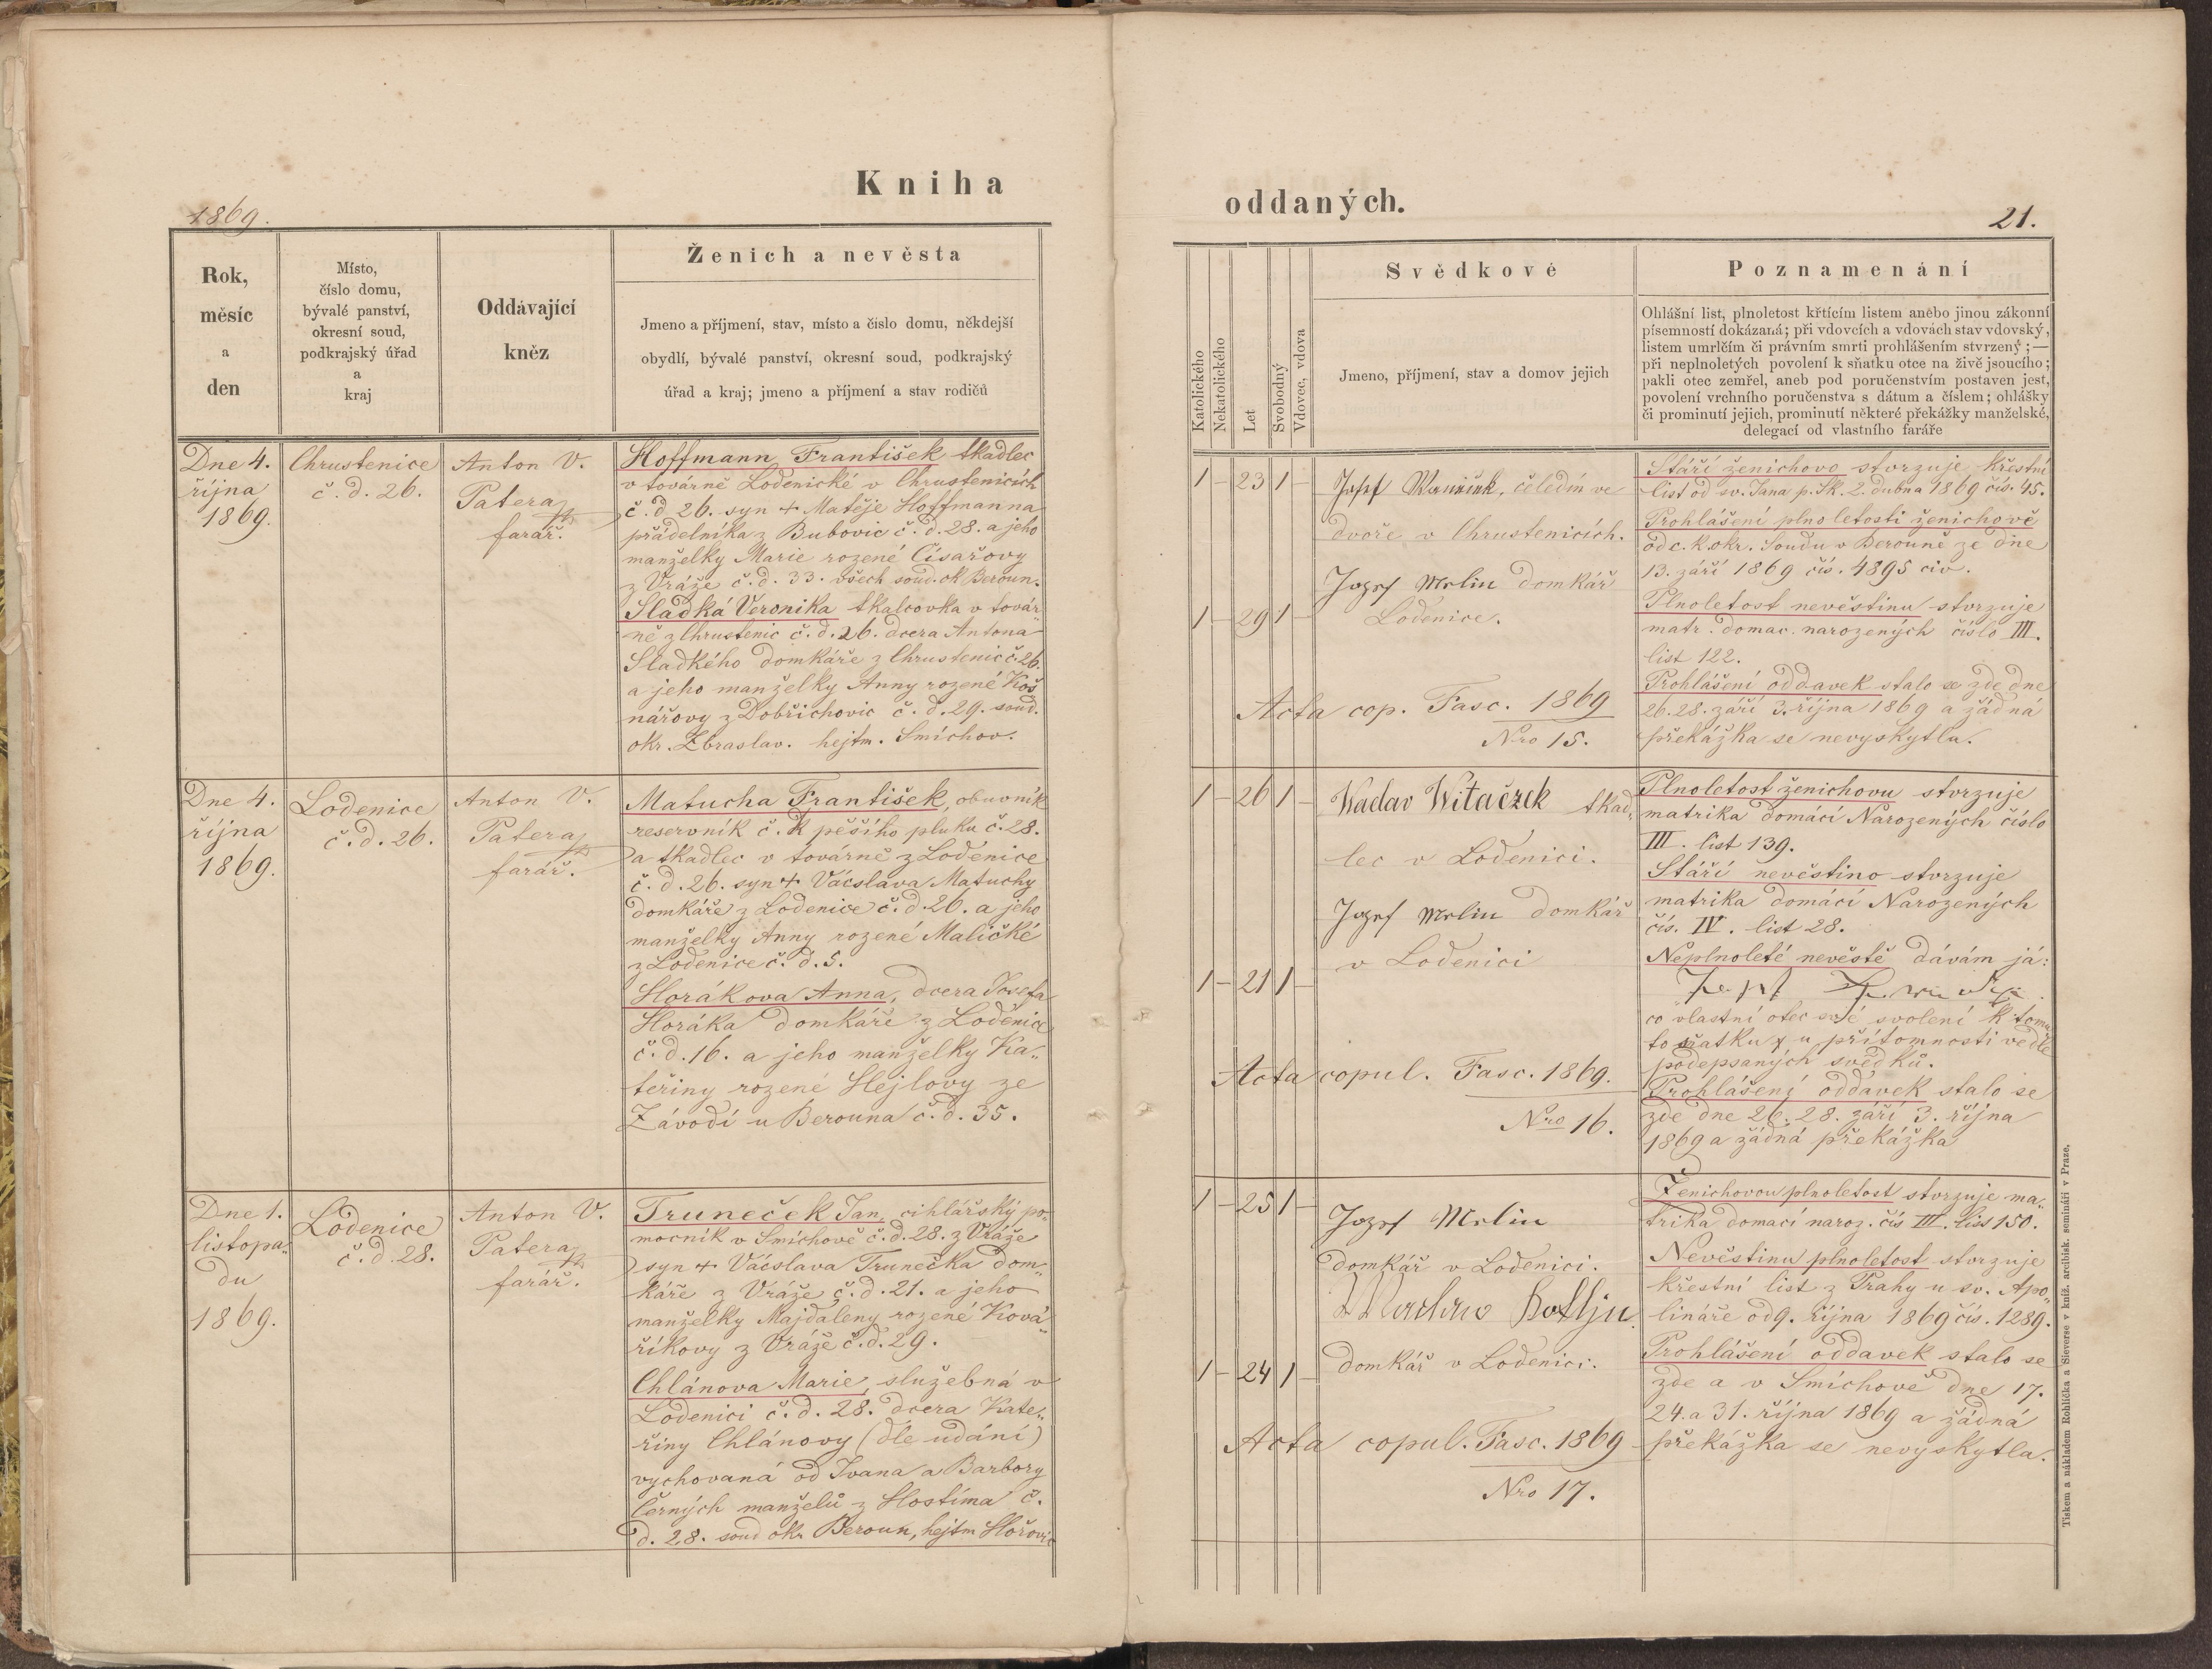 1869.
Kniha
Rok,
měsíc
a
den
Místo,
číslo domu,
bývalé panství,
okresní soud,
podkrajský úřad
a
kraj
Oddávající
kněz
Ženich a nevěsta
Jmeno a příjmení, stav, místo a číslo domu, někdejší
obydlí, bývalé panství, okresní soud, podkrajský
úřad a kraj; jmeno a příjmení a stav rodičů
Dne 4.
října
1869.
Chrustenice
č. d. 26.
Anton V.
Patera
farář.
Hoffmann František tkadlec
v továrně Lodenické v Chrustenicích
č. d. 26. syn + Matěje Hoffmanna
přádelníka z Bubovic č. d. 28. a jeho
manželky Marie rozené Císařovy
z Vráže č. d. 33. všech soud. ok Beroun.
Sladká Veronika tkalcovka v továr„
ně z Chrustenic č. d. 26. dcera Antona
Sladkého domkáře z Chrustenic č. 26.
a jeho manželky Anny rozené Koš„
nářovy z Dobřichovic č. d. 29. soud.
okr. Zbraslav. hejtm. Smíchov.
Dne 4.
října
1869.
Lodenice
č. d. 26.
Anton V.
Patera
farář.
Matucha František, obuvník
reservník č. k pěšího pluku č. 28.
a tkadlec v továrně z Lodenice
č. d. 26. syn + Vácslava Matuchy
domkáře z Lodenice č. d. 26. a jeho
manželky Anny rozené Maličké
z Lodenice č. d. 5.
Horákova Anna, dcera Josefa
Horáka domkáře z Loděnice
č. d. 16. a jeho manželky Ka„
teřiny rozené Hejlovy ze
Závodí u Berouna č. d. 35.
Dne 1.
listopa„
du
1869.
Lodenice
č. d. 28.
Anton V.
Patera
farář.
Truneček Jan, cihlářský po„
mocník v Smíchově č. d. 28. z Vráže
syn + Vácslava Trunečka dom„
káře z Vráže č. d. 21. a jeho
manželky Majdaleny rozené Ková„
říkovy z Vráže č. d. 29.
Chlánova Marie, služebná v
Lodenici č. d. 28. dcera Kate„
řiny Chlánovy (dle udání)
vychovaná od Ivana a Barbory
Černých manželů z Hostíma č.
d. 28. soud okr Beroun, hejtm Hořovic
oddaných.
21.
Katolického
Nekatolického
Let
Svobodný
Vdovec, vdova
Svědkové
Jmeno, příjmení, stav a domov jejich
Poznamenání
Ohlášní list, plnoletost křtícím listem anebo jinou zákonní
písemností dokázaná; při vdovcích a vdovách stav vdovský,
listem umrlčím či právním smrti prohlášením stvrzený; —
při neplnoletých povolení k sňatku otce na živě jsoucího;
pakli otec zemřel, aneb pod poručenstvím postaven jest,
povolení vrchního poručenstva s dátum a číslem; ohlášky
či prominutí jejich, prominutí některé překážky manželské,
delegací od vlastního faráře
1 – 23 1 –
1 – 29 1 –
Josef čeledín ve
dvoře v Chrustenicích.
Jozef Mrlin domkář
Lodenice.
Acta cop. Fasc. 1869
Nro 15.
Stáří ženichovo stvrzuje křestní
list od sv. Jana p. Sk. 2. dubna 1869 čís. 45.
Prohlášení plnoletosti ženichově
od c. k. okr. Soudu v Berouně ze dne
13. září 1869 čís. 4895 civ.
Plnoletost nevěstinu stvrzuje
matr. domac. narozených číslo III.
list 122.
Prohlášení oddavek stalo se zde dne
26. 28. září 3. října 1869 a žádná
překážka se nevyskytla.
1 – 26 1 –
1 – 21 1 –
Waclav Witaczek tkad„
lec v Lodenici.
Jozef Mrlin domkář
v Lodenici
Acta copul. Fasc. 1869.
Nro 16.
Plnoletost ženichovu stvrzuje
matrika domácí Narozených číslo
III. list 139.
Stáří nevěstino stvrzuje
matrika domácí Narozených
čís. IV. list 28.
Neplnoleté nevěstě dávám já:
co vlastní otec své svolení k tomu„
to sňatku u přítomnosti vedle
podepsaných svědků.
Prohlášení oddávek stalo se
zde dne 26. 28. září 3. října
1869 a žádná překážka
1 – 25 1 –
1 – 24 1 –
Jozef Mrlin
domkář v Lodenici.
domkář v Lodenici.
Acta copul. Fasc. 1869
Nro 17.
Ženichovou plnoletost stvrzuje ma„
trika domací naroz. čís III. lis 150.
Nevěstinu plnoletost stvrzuje
křestní list z Prahy u sv. Apo„
lináře od 9. října 1869 čís. 1289.
Prohlášení oddavek stalo se
zde a v Smíchově dne 17.
24. a 31. října 1869 a žádná
překážka se nevyskytla.
Tiskem a nákladem Rohlíčka a Sieverse v kníž. arcibisk. semináři v Praze.